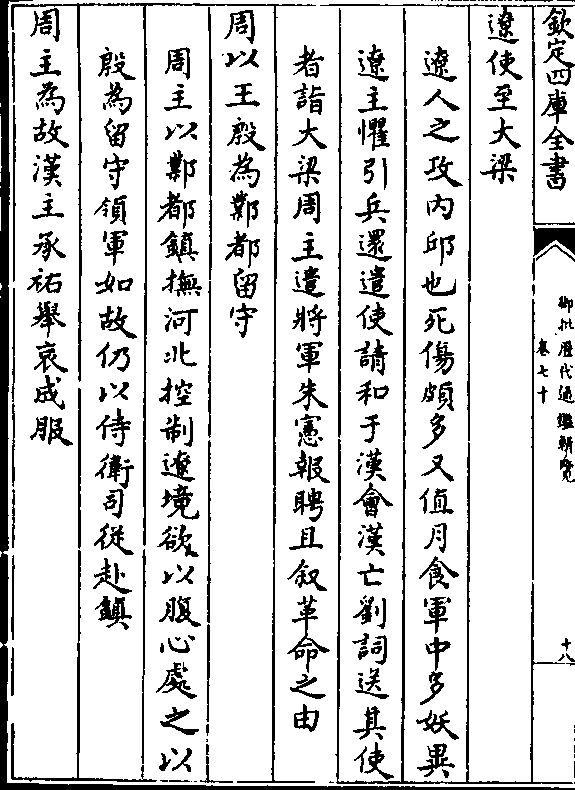 欽定四庫全書
御批歷代通鑑輯覽
卷七十
十八
遼使至大梁
遼人之攻內邱也死傷頗多又值月食軍中多妖異
遼主懼引兵還遣使請和于漢會漢亡劉詞送其使
者詣大梁周主遣將軍朱憲報聘且叙革命之由
周以王殷為鄴都留守
周主以鄴都鎮撫河北控制遼境欲以腹心處之以
殷為留守領軍如故仍以侍衛司從赴鎮
周主為故漢主承祐舉哀成服